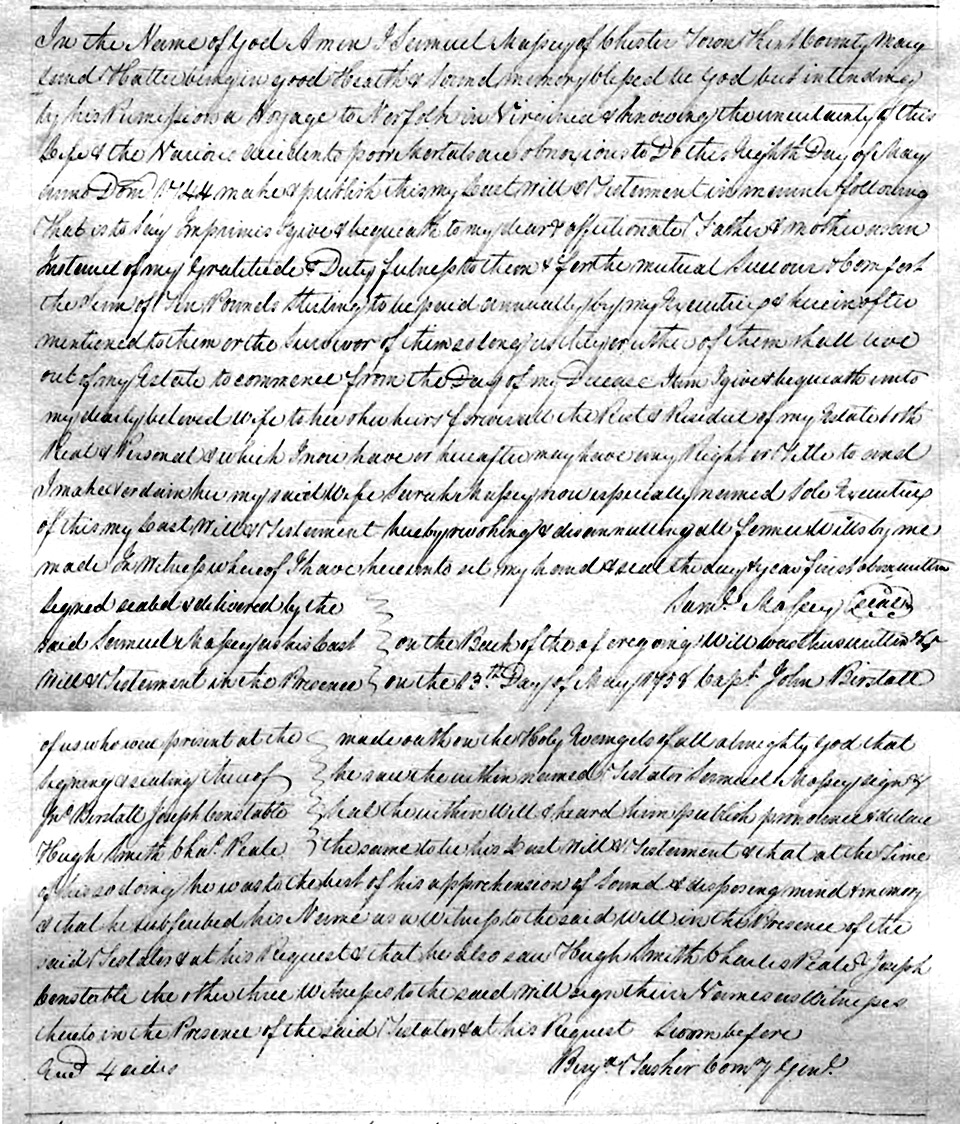 In the Name of God Amen I Samuel Massey of Chester Town Kent County Mary
land Hatter being in good Health & sound memory blessed be God but intending
by his Permission a Voyage to Norfolk in Virginia & knowing the uncertainty of this
Life & the Various accidents poor mortals are obnoxious to Do this Eighth Day of May
anno Dom 1744 make & publish this my Last Will & Testament in manner following
That is to Say Imprimis I give & bequeath to my dear & affectionate Father & mother as an
Instance of my Gratitude & Dutyfulness to them & for the mutual Succour & Comfort
the Sum of Ten Pounds Sterling to be paid annually by my Executrix herein after
mentioned to them or the Survivor of them so long as they or either of them shall live
out of my Estate to commence from the Day of my Decease Item I give & bequeath unto
my dearly beloved Wife to her & her heirs forever all the Rest & Residue of my Estate both
Real & Personal & which I now have or hereafter may have any Right or Title to and
I make & ordain her my said Wife Sarah Massey now especially named Sole Executrix
of this my Last Will & Testament hereby revoking & disannulling all former Wills by me
made In Witness whereof I have hereunto set my hand & seal the day & year first above written
signed sealed & delivered by the Saml. Massey (seal)
said Samuel Massey as his Last on the Back of the aforegoing Will was thus written
Will & Testament in the Presence on the 13th Day of May Capt John Birstall
of us who were present at the made oath on the Holy Evangels of all almighty God that
signing & sealing thereof he saw the within named Testator Samuel Massey sign &
Jno. Birstall Joseph Constable Seal the within Will & heard him publish pronounce & declare
Hugh Smith Chas. Peale the same to be his Last Will & Testament & that at the Time
of his so doing he was to the best of his apprehension of Sound & disposing mind & memory
& that he subscribed his Name as a Witness to the said Will in the Presence of the
said Testator & at his Request & that he also saw Hugh Smith Charles Peale & Joseph
Constable the other three Witnesses to the said Will sign their Names as Witnesses
thereto in the Presence of the said Testator & at his Request Sworn before
4 sides Benja. Tasker Comry Genl.